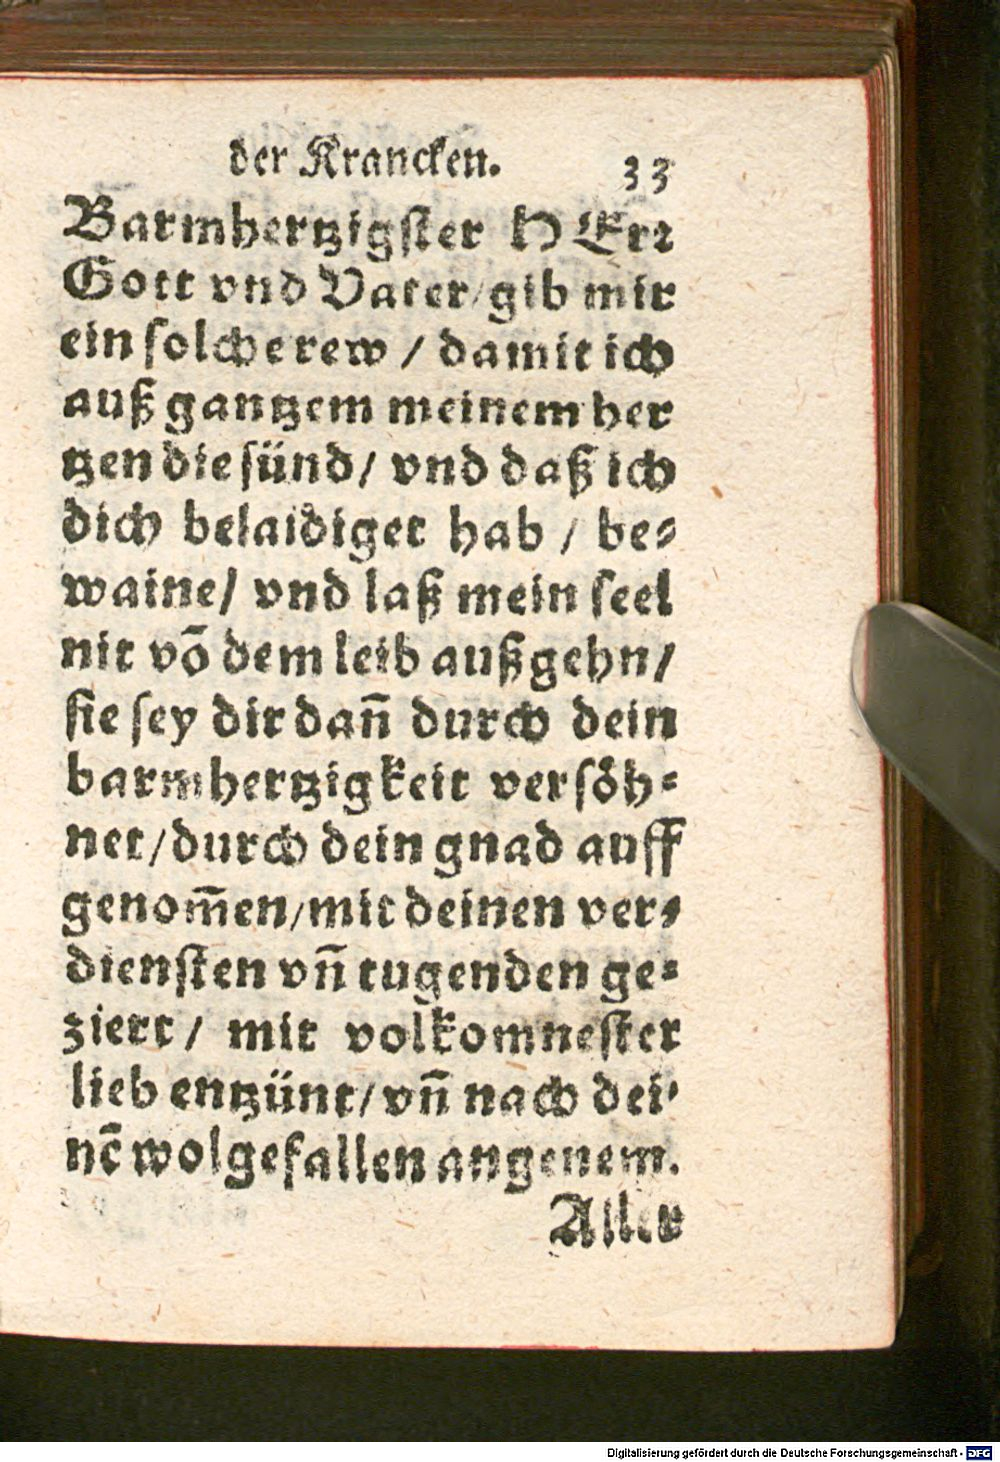 der Krancken. 33
Barmhertzigster HErr
Gott vnd Vater/gib mir
ein solche rew / damit ich
auß gantzem meinem her
tzen die sünd/ vnd daß ich
dich belaidiget hab / be-
waine/ vnd laß mein seel
nit võ dem leib außgehn/
sie sey dir dañ durch dein
barmhertzigkeit versöh-
net/durch dein gnad auff
genom̃en/mit deinen ver-
diensten vñ tugenden ge-
ziert/ mit volkomnester
lieb entzünt/vñ nach dei-
nẽ wolgefallen angenem.
Aller
Digitalisierung gefördert durch die Deutsche Forschungsgemeinschaft - DFG